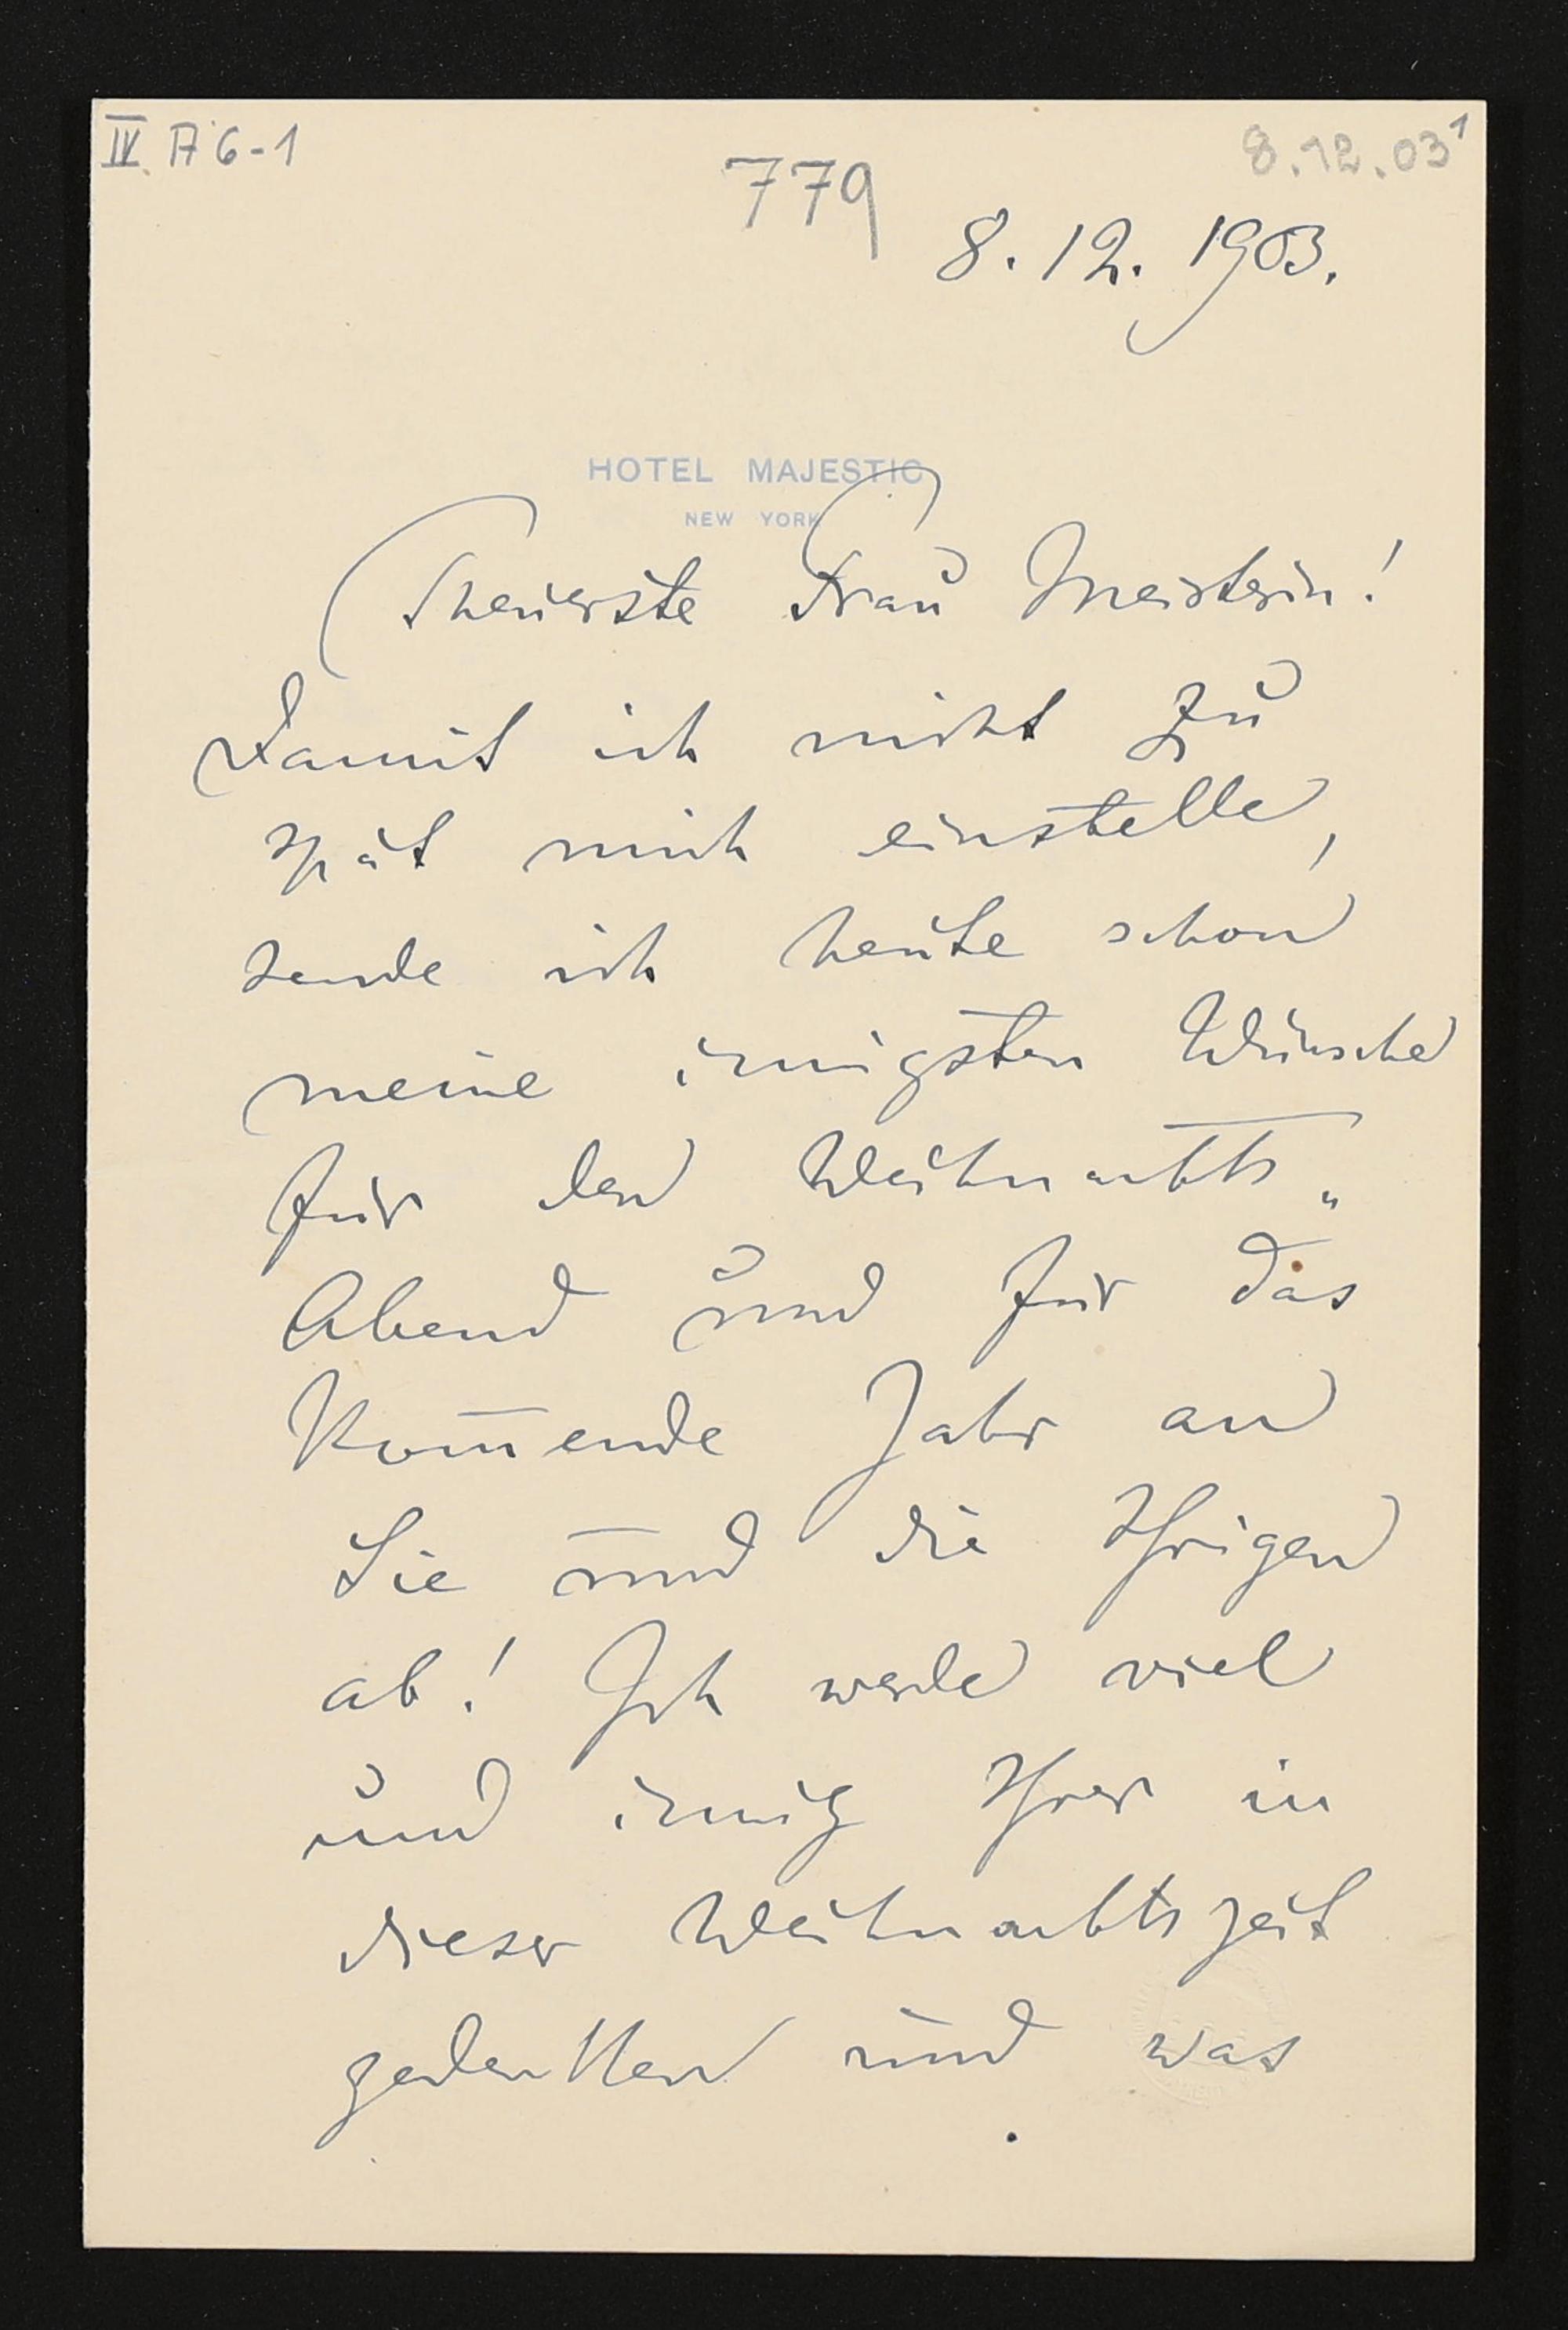 IV. A 6-1
8.12.03¹
779
8. 12. 1903.
HOTEL MAJESTIC
NEW YORK
Theuerste Frau Meisterin!
Damit ich nicht zu
spät mich einstelle,
sende ich heute schon
meine innigsten Wünsche
für den Weihnachts„
Abend und für das
kom̅ende Jahr an
Sie und die Ihrigen
ab! Ich werde viel
und innig Ihrer in
dieser Weihnachtszeit
gedenken und was